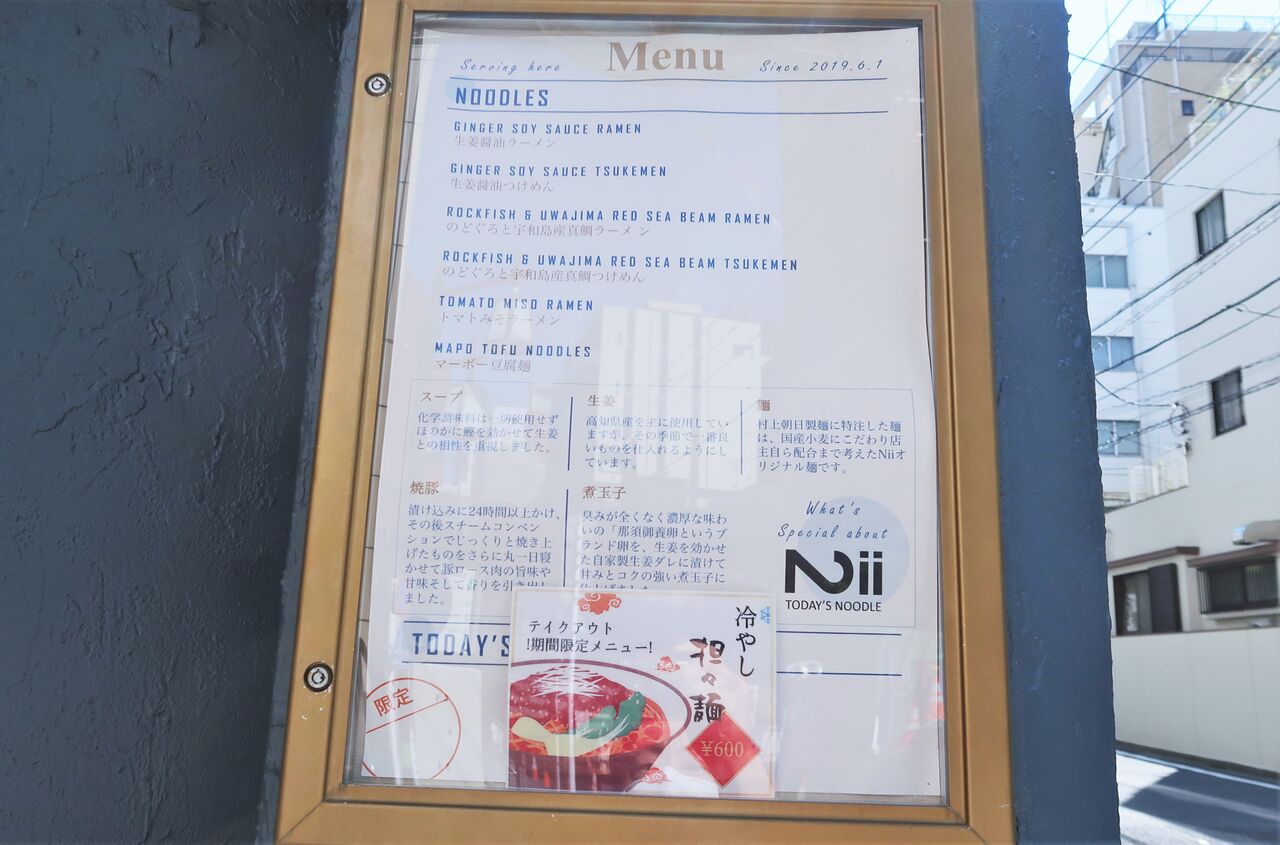 Menu
Serving here
Since 2019.6.1
NOODLES
GINGER SOY SAUCE RAMEN
生姜醤油ラーメン
GINGER SOY SAUCE TSUKEMEN
生姜醤油つけめん
ROCKFISH & UWAJIMA RED SEA BEAM RAMEN
のどぐろと宇和島産真鯛ラーメン
ROCKFISH & UWAJIMA RED SEA BEAM TSUKEMEN
のどぐろと宇和島産真鯛つけめん
TOMATO MISO RAMEN
トマトみそラーメン
MAPO TOFU NOODLES
マーボー豆腐麺
スープ
化学調味料は一切使用せず
ほのかに鰹を効かせて生姜
との相性を重視しました。
生姜
高知県産を主に使用してい
ますが、その季節で一番良
いものを仕入れるようにし
ています。
麺
村上朝日製麺に特注した麺
は、国産小麦にこだわり店
主自ら配合まで考えたNiiオ
リジナル麺です。
焼豚
漬け込みに24時間以上かけ、
その後スチームコンベン
ションでじっくりと焼き上
げたものをさらに丸一日寝
かせて豚ロース肉の旨味や
甘味そして香りを引き出し
ました。
煮玉子
臭みが全くなく濃厚な味わ
いの「那須御養卵というブ
ランド卵を、生姜を効かせ
た自家製生姜ダレに漬けて
甘みとコクの強い煮玉子に
What's
Special about
Nii
TODAY'S NOODLE
TODAY'S
限定
テイクアウト
!期間限定メニュー!
冷やし
担々麺
¥600